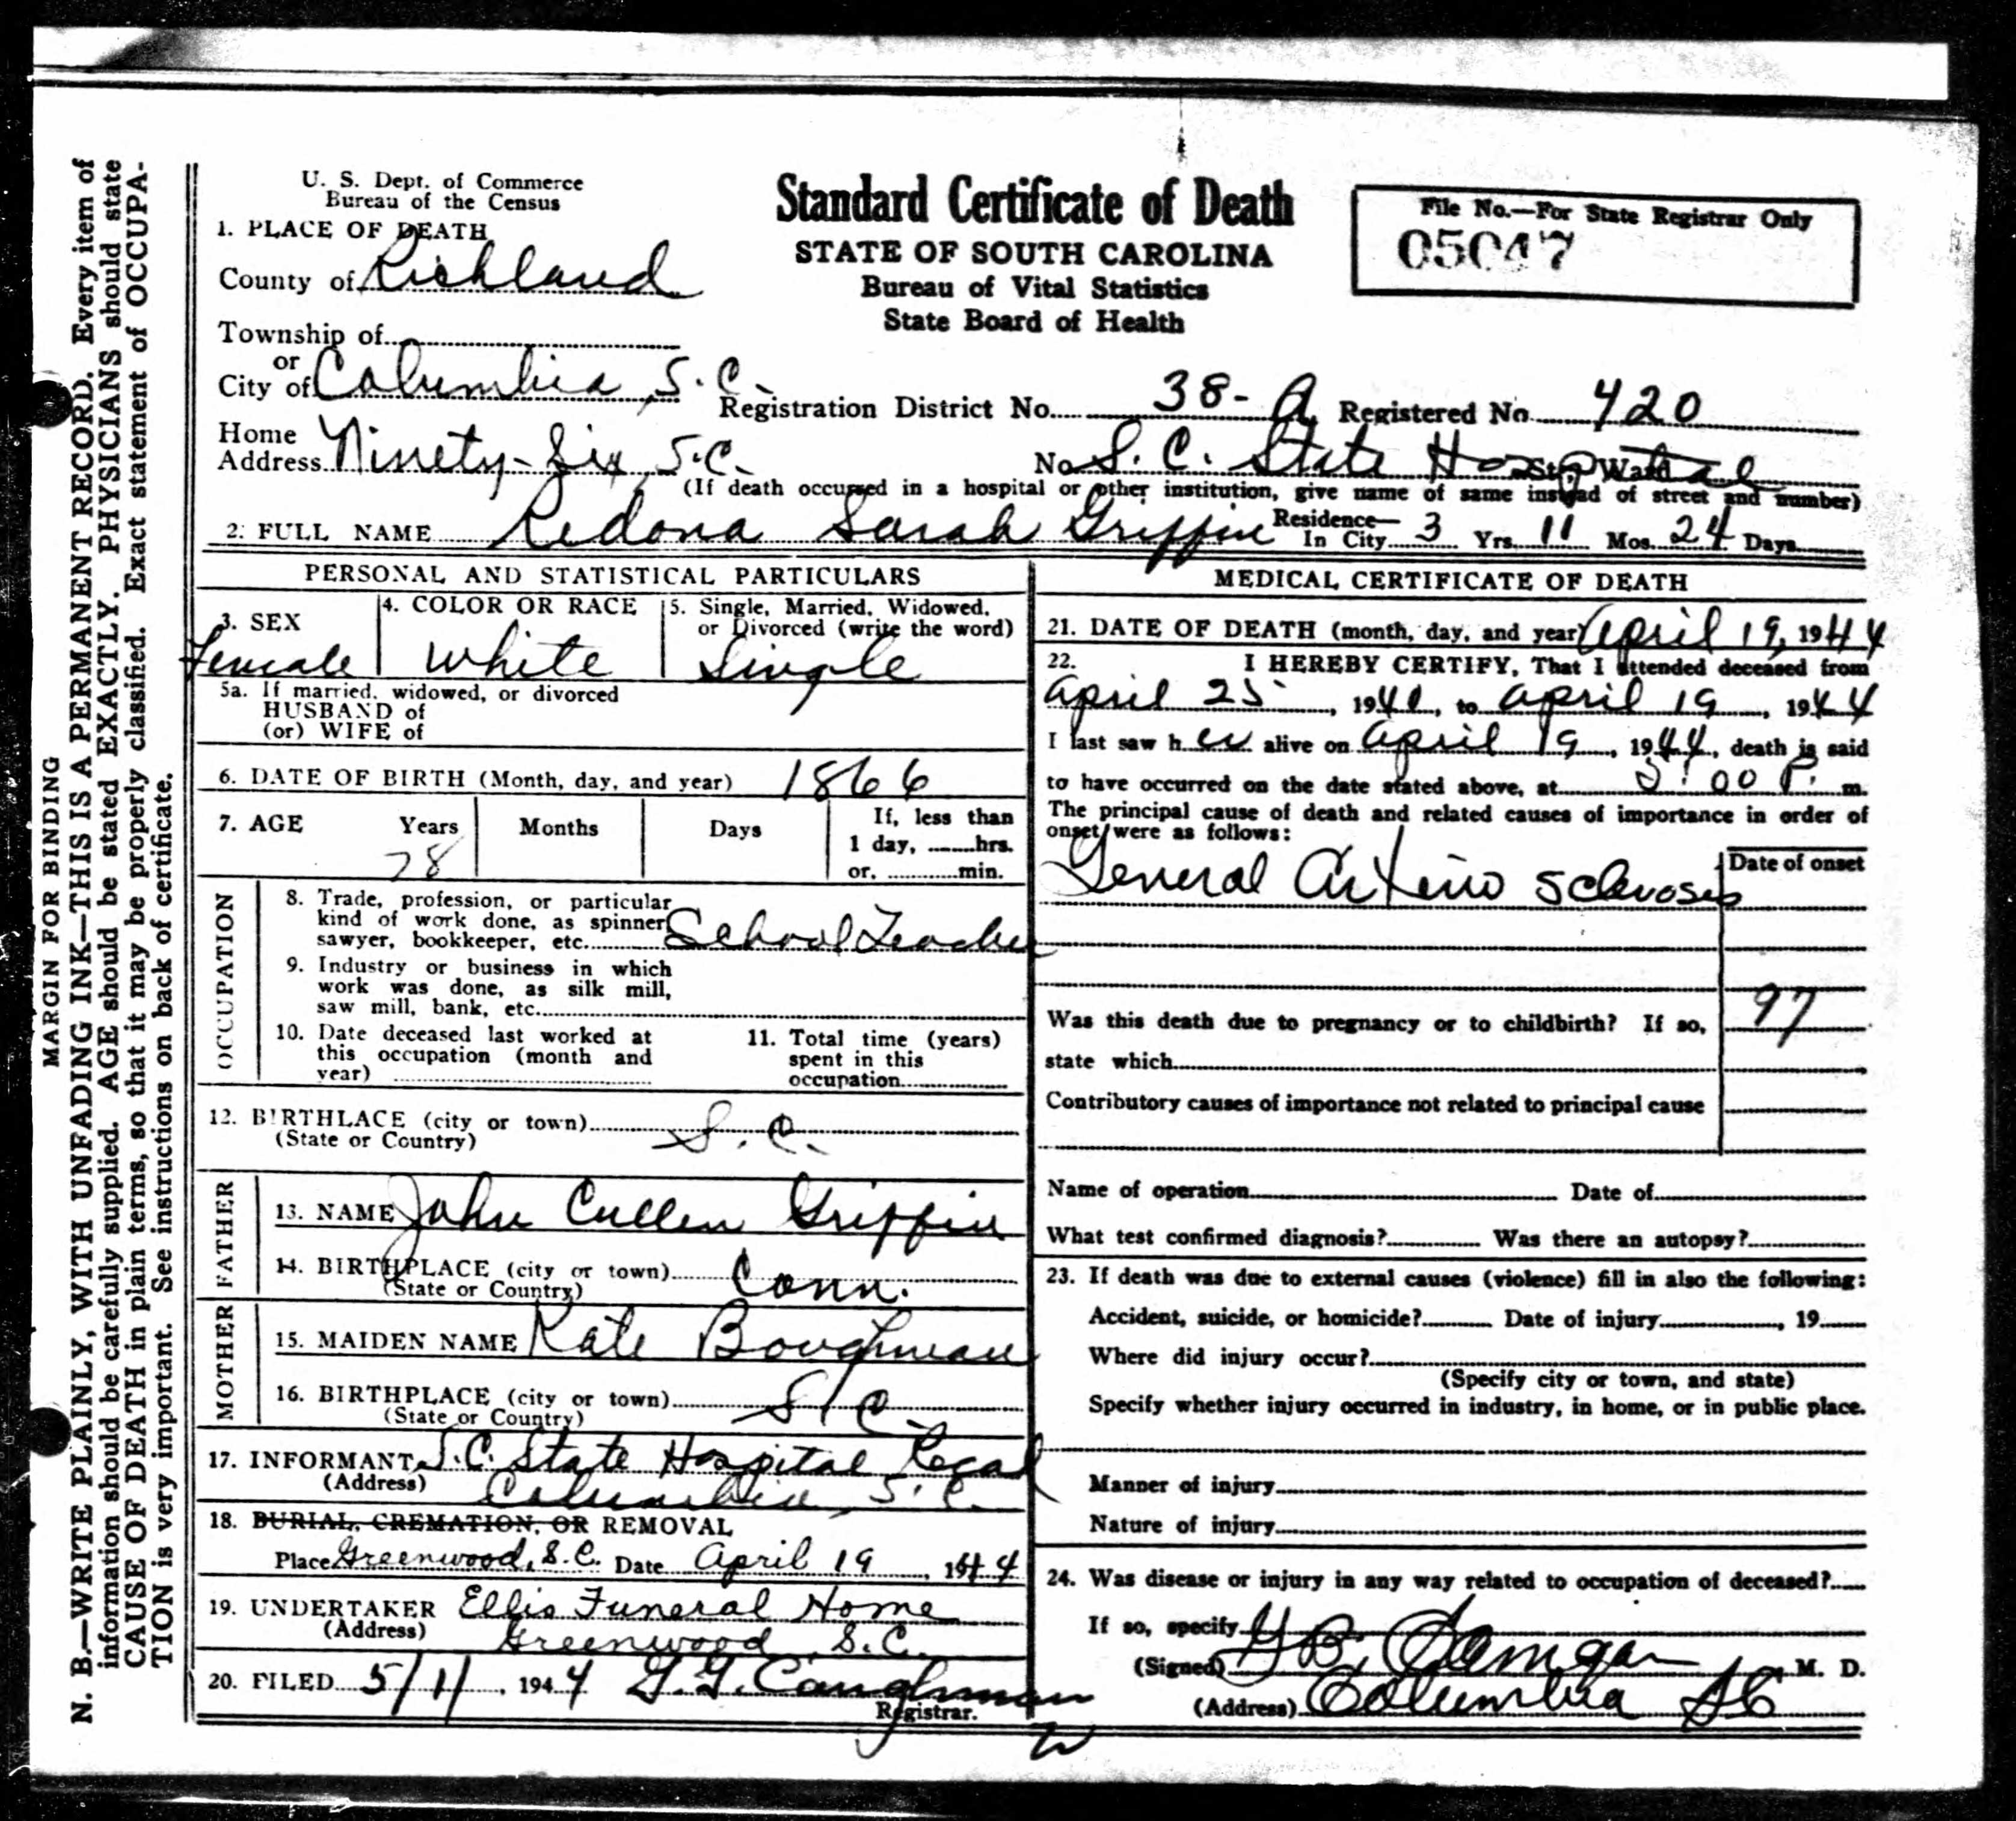 U. S. Dept. of Commerce
Bureau of the Census
Standard Certificate of Death
STATE OF SOUTH CAROLINA
Bureau of Vital Statistics
State Board of Health
File No.—For State Registrar Only
05047
1. PLACE OF DEATH
County of Richland
Township of
or
City of Columbia, S.C.
Registration District No. 38-A Registered No. 420
Home Address Ninety-Six, S.C.
No. S. C. State Hospital St., Ward
(If death occurred in a hospital or other institution, give name of same instead of street and number)
2. FULL NAME Redona Sarah Griffin Residence— In City 3 Yrs. 11 Mos. 24 Days
PERSONAL AND STATISTICAL PARTICULARS
3. SEX Female
4. COLOR OR RACE White
5. Single, Married, Widowed, or Divorced (write the word) Single
5a. If married, widowed, or divorced
HUSBAND of
(or) WIFE of
6. DATE OF BIRTH (Month, day, and year) 1866
7. AGE Years 78 Months Days If, less than 1 day, hrs. or, min.
OCCUPATION
8. Trade, profession, or particular
kind of work done, as spinner
sawyer, bookkeeper, etc. School Teacher
9. Industry or business in which
work was done, as silk mill,
saw mill, bank, etc.
10. Date deceased last worked at
this occupation (month and
year)
11. Total time (years)
spent in this
occupation
12. BIRTHLACE (city or town) S.C.
(State or Country)
FATHER
13. NAME John Cullen Griffin
14. BIRTHPLACE (city or town) Conn.
(State or Country)
MOTHER
15. MAIDEN NAME Kate Boughman
16. BIRTHPLACE (city or town) S.C.
(State or Country)
17. INFORMANT S.C. State Hospital
(Address) Columbia, S.C.
18. BURIAL, CREMATION, OR REMOVAL
Place Greenwood, S.C. Date April 19, 1944
19. UNDERTAKER Ellis Funeral Home
(Address) Greenwood S.C.
20. FILED 5/11, 1944 G.G. Caughman
Registrar.
MEDICAL CERTIFICATE OF DEATH
21. DATE OF DEATH (month, day, and year) April 19, 1944
22. I HEREBY CERTIFY, That I attended deceased from
April 25, 1940, to April 19, 1944
I last saw her alive on April 19, 1944, death is said
to have occurred on the date stated above, at 5:00 P. m.
The principal cause of death and related causes of importance in order of
onset were as follows:
Date of onset
General Arterio Sclerosis
97
Was this death due to pregnancy or to childbirth? If so,
state which
Contributory causes of importance not related to principal cause
Name of operation Date of
What test confirmed diagnosis? Was there an autopsy?
23. If death was due to external causes (violence) fill in also the following:
Accident, suicide, or homicide? Date of injury, 19
Where did injury occur?
(Specify city or town, and state)
Specify whether injury occurred in industry, in home, or in public place.
Manner of injury
Nature of injury
24. Was disease or injury in any way related to occupation of deceased?
If so, specify
(Signed) M. D.
(Address) Columbia SC
MARGIN FOR BINDING
N. B.—WRITE PLAINLY, WITH UNFADING INK—THIS IS A PERMANENT RECORD. Every item of
information should be carefully supplied. AGE should be stated EXACTLY. PHYSICIANS should state
CAUSE OF DEATH in plain terms, so that it may be properly classified. Exact statement of OCCUPA-
TION is very important. See instructions on back of certificate.